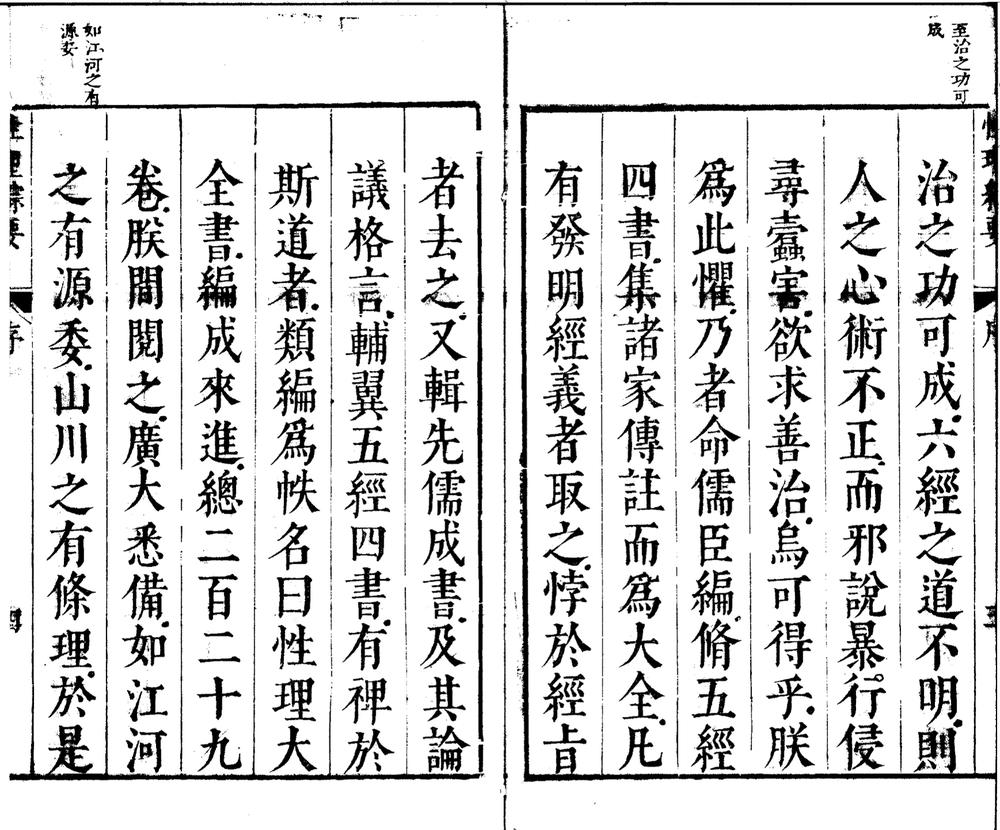 至治之功可
成
治之功可成六經之道不明則
人之心術不正而邪說暴行侵
尋蠹害欲求善治烏可得乎朕
爲此懼乃者命儒臣編脩五經
四書集諸家傳註而爲大全凡
有發明經義者取之悖於經㫖
如江河之有
源委
者去之又輯先儒成書及其論
議格言輔翼五經四書有裨於
斯道者類編爲帙名曰性理大
全書編成來進總二百二十九
卷朕間閱之廣大悉備如江河
之有源委山川之有條理於是